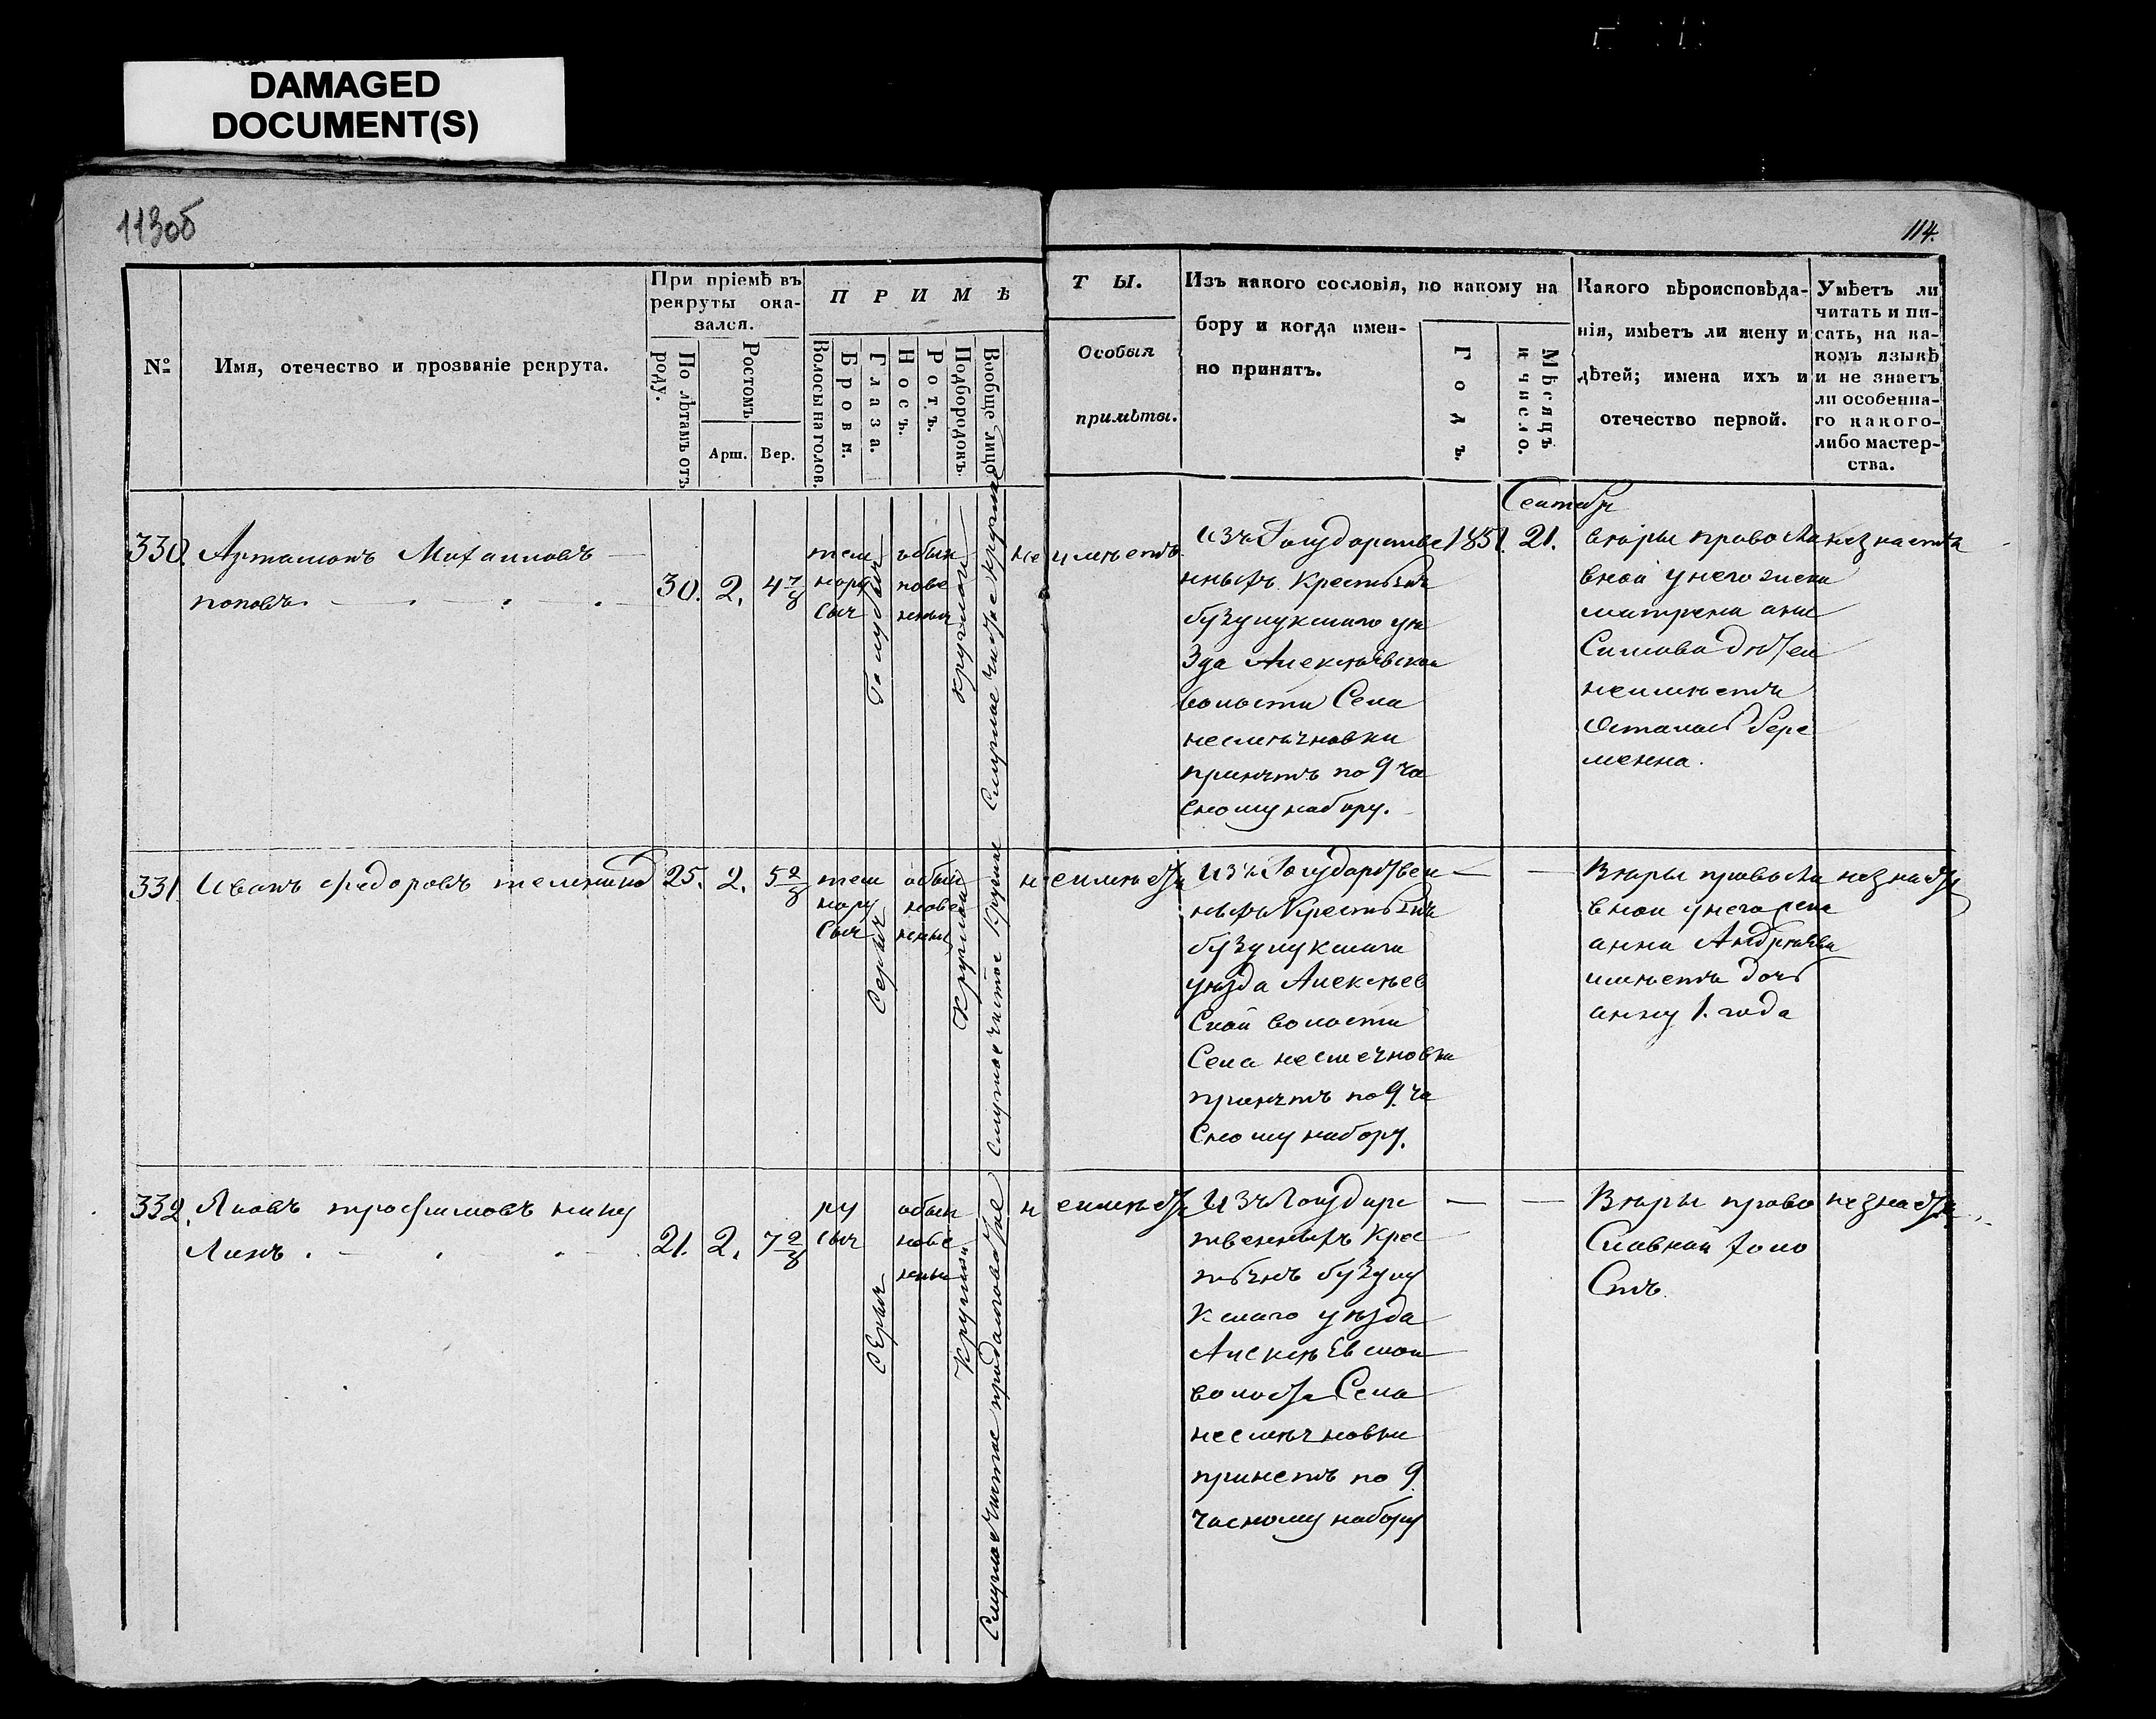 DAMAGED
DOCUMENT(S)
113об
114.
№
Имя, отечество и прозваніе рекрута.
При пріемѣ въ
рекруты ока-
зался.
По лѣтамъ отъ
роду.
Ростомъ
Арш. Вер.
ПРИМѢ
Волосы на голов.
Брови.
Глаза.
Носъ.
Ротъ.
Подбородокъ.
Вообще лицо
ТЫ.
Особыя
примѣты.
Изъ какого сословія, по какому на
бору и когда имен-
но принятъ.
Годъ.
Мѣсяцъ
и число.
Какого вѣроисповѣда-
нія, имѣетъ ли жену и
дѣтей; имена ихъ и
отечество первой.
Умѣетъ ли
читать и пи-
сать, на ка-
комъ языкѣ
и не знаетъ
ли особенна-
го какого-
либо мастер-
ства.
330. Артамонъ Михаиловъ
поповъ.
30. 2. 4 7/8
тем
нору
сыя
Голубыя
обык
нове
нныя
круглой
Смуглое чистое круглое
не имѣетъ.
изъ Государстве
нныхъ Крестьянъ
бузулукского уѣ
зда Алексѣевской
волости Села
несмѣяновки
принятъ по 9 ча
сному набору.
1851.
Сентября
21.
вѣры правосла
вной у него жена
матрена ани
Симова дѣтей
неимѣетъ
осталась бере
менна.
незнаетъ
331. Иванъ Федоровъ
25. 2. 5 2/8
тем
нору
Сыя
Серыя
обык
нове
нныя
Круглой
Смуглое чистое Круглое
неимѣетъ
Изъ Государствен
ныхъ Крестьянъ
бузулукского
уѣзда Алексѣев
Ской волости
Села несмеяновки
принятъ по 9 ча
Сному набору.
— —
Вѣры правосла
вной у него жена
анна Андрѣева
имѣетъ дочь
анну 1. года
незнаетъ
332. Яковъ трофимовъ нику
Линъ.
21. 2. 7 2/8
ру
сыя
Серыя
обык
нове
нныя
Круглой
Смуглое чистое продолговатое
неимѣетъ
Изъ Государс
твенныхъ Крес
тьянъ бузулу
кского уѣзда
Алексѣевской
волости Села
несмѣяновки
принетъ по 9
часному набору
— —
Вѣры право
Славной холо
Стъ.
незнаетъ